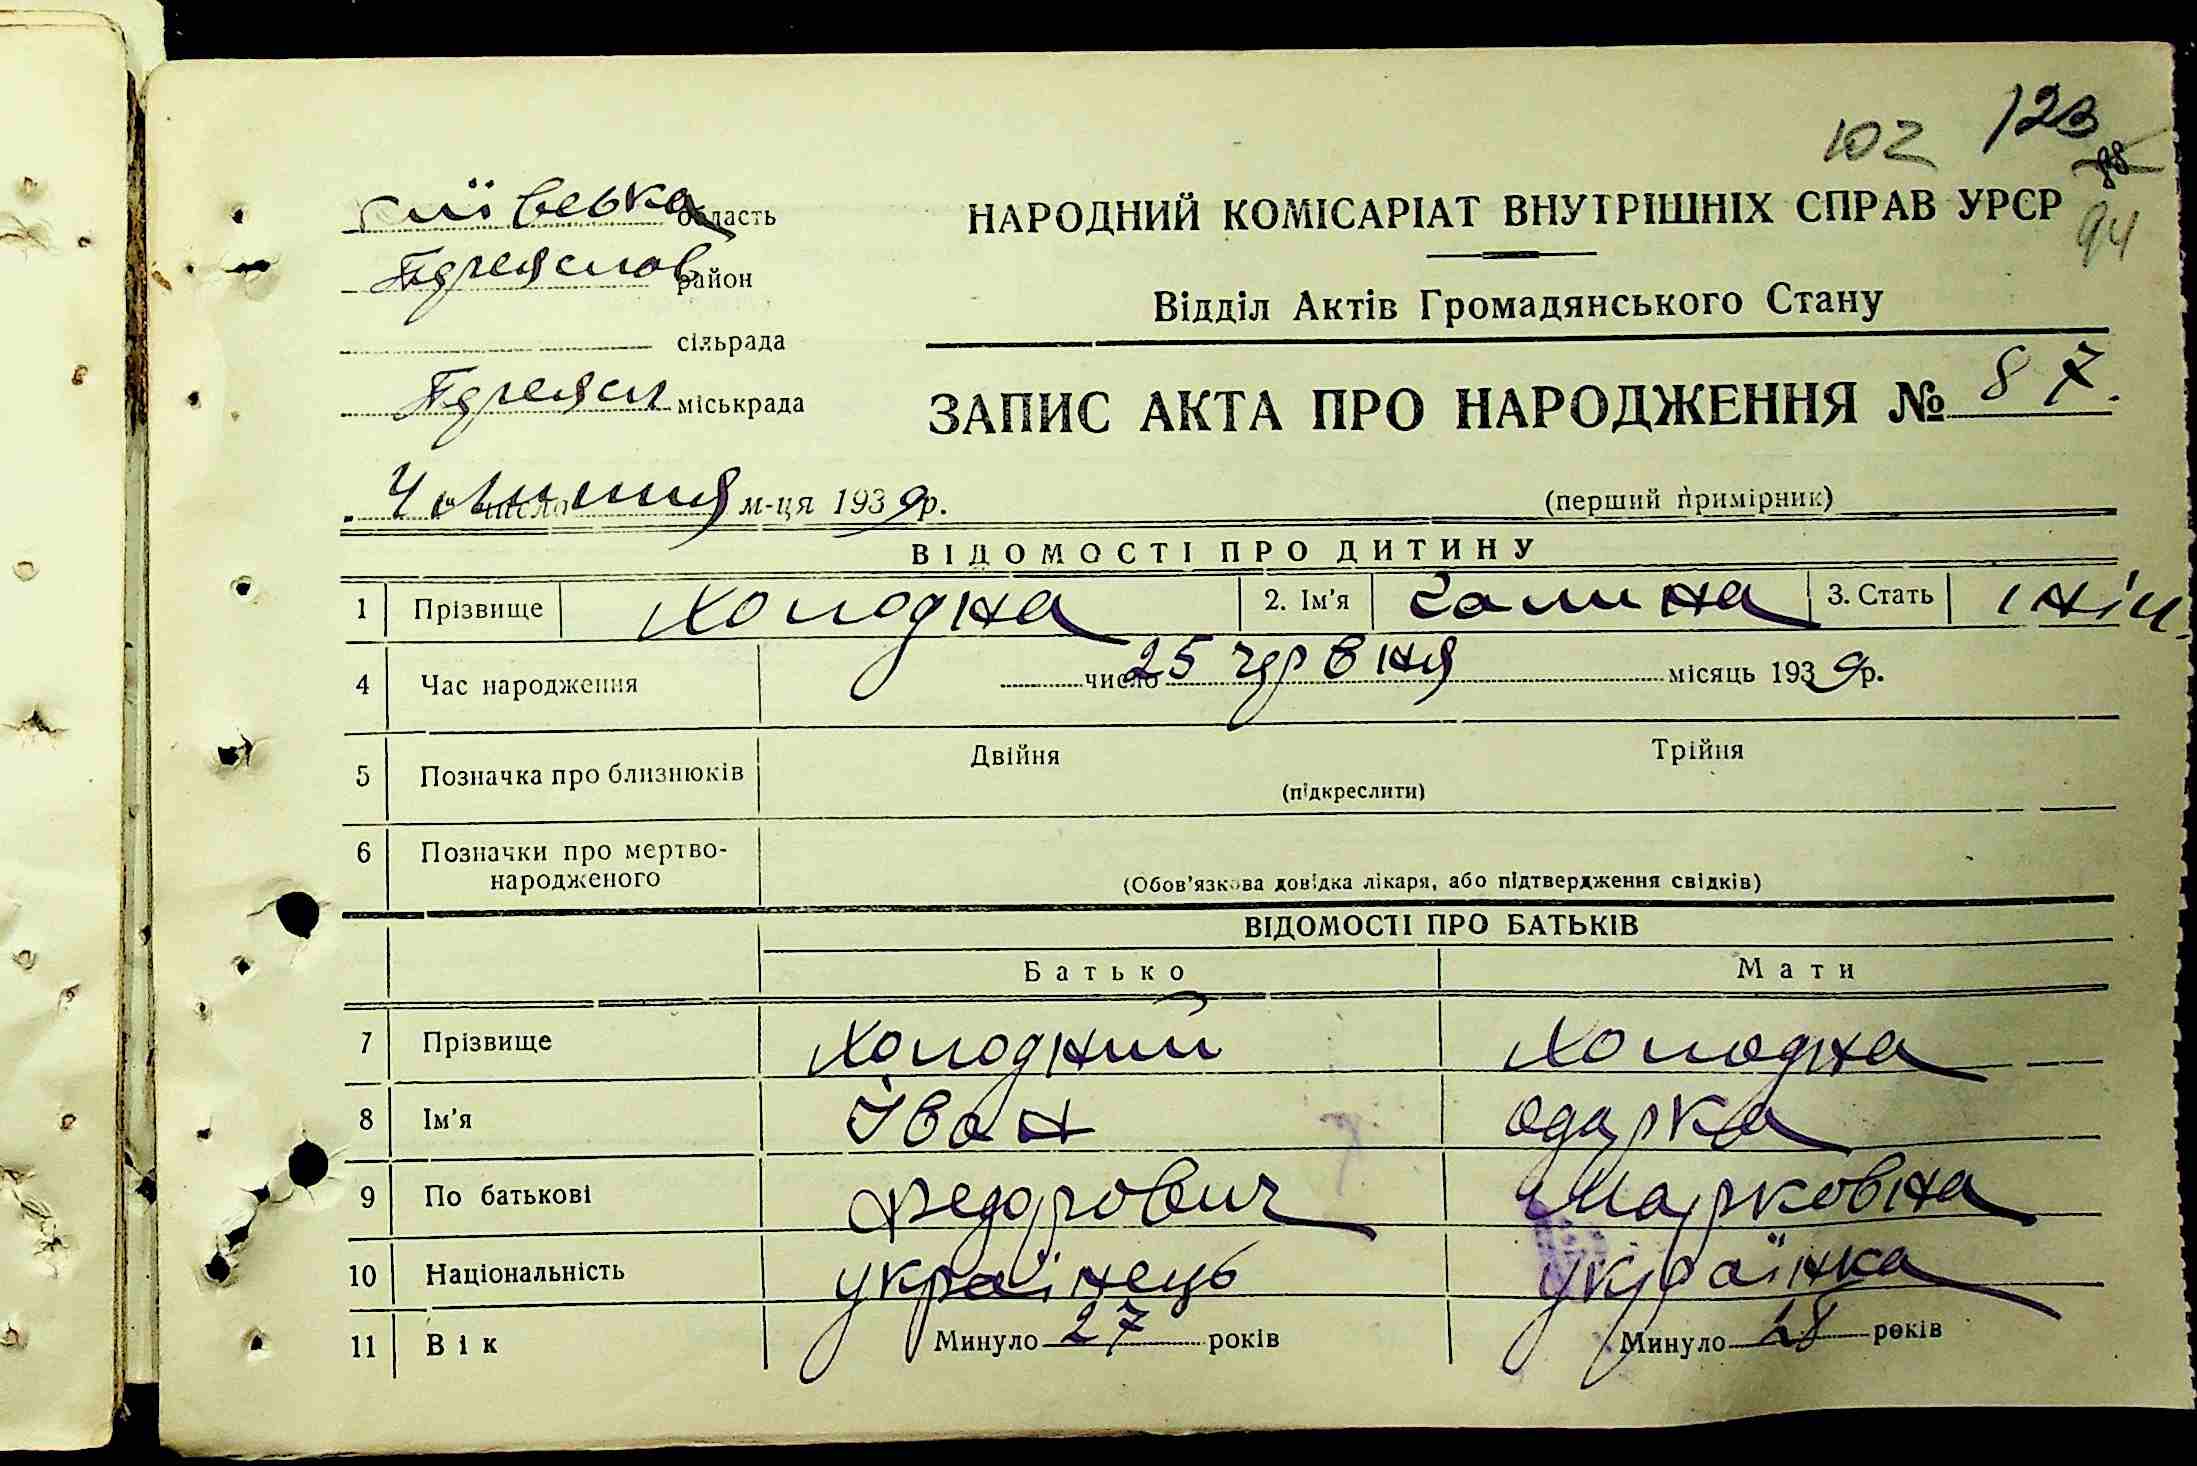 102 123
88
94
Київська область
Переяслов район
сільрада
Переясл міськрада
НАРОДНИЙ КОМІСАРІАТ ВНУТРІШНІХ СПРАВ УРСР
Відділ Актів Громадянського Стану
ЗАПИС АКТА ПРО НАРОДЖЕННЯ № 87.
4 число липня м-ця 1939 р.
(перший примірник)
ВІДОМОСТІ ПРО ДИТИНУ
1 Прізвище Холодна 2. Ім'я Галина 3. Стать жін.
4 Час народження число 25 червня місяць 1939 р.
5 Позначка про близнюків Двійня Трійня
(підкреслити)
6 Позначки про мертво-
народженого
(Обов'язкова довідка лікаря, або підтвердження свідків)
ВІДОМОСТІ ПРО БАТЬКІВ
Батько Мати
7 Прізвище Холодний Холодна
8 Ім'я Іван Одарка
9 По батькові Федорович Марковна
10 Національність українець українка
11 Вік Минуло 27 років Минуло 28 років